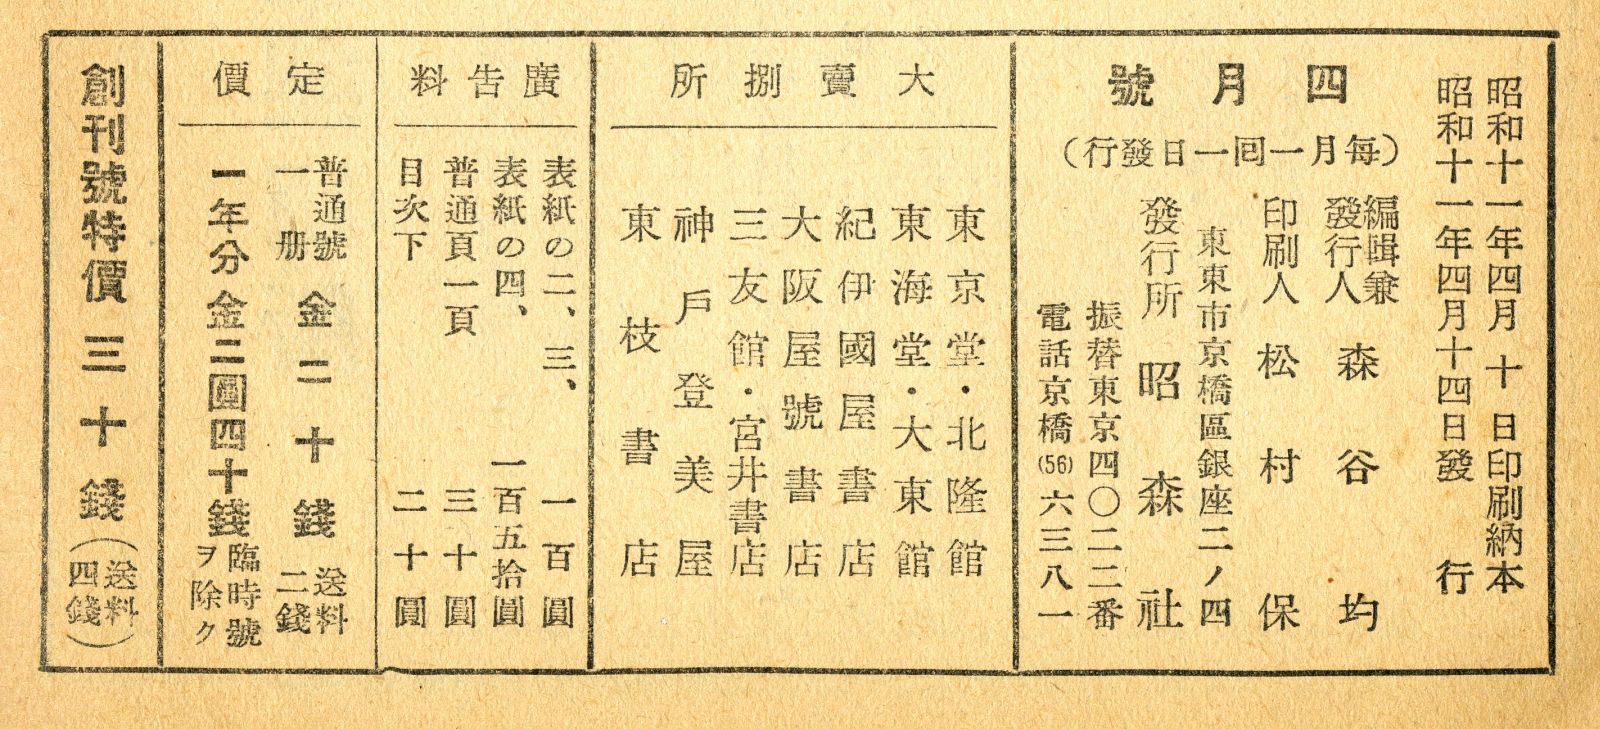 昭和十一年四月 十 日印刷納本
昭和十一年四月十四日發 行
四月號
(每月一回一日發行)
編輯兼
發行人 森谷均
印刷人 松村保
東東市京橋區銀座二ノ四
發行所 昭森社
振替東京四〇二二番
電話京橋(56)六三八一
大賣捌所
東京堂・北隆館
東海堂・大東館
紀伊國屋書店
大阪屋號書店
三友館・宮井書店
神戶登美屋
東枝書店
廣告料
表紙の二、三、 一百圓
表紙の四、 一百五拾圓
普通頁一頁 三十圓
目次下 二十圓
定價
普通號
一冊 金二十錢 送料二錢
一年分 金二圓四十錢 臨時號ヲ除ク
創刊號特價 三十錢(送料四錢)